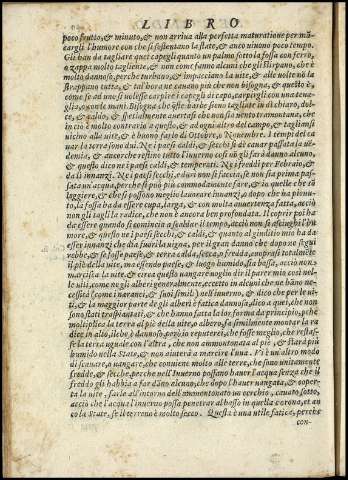 LIBRO
poco frutto, & minuto, & non arriva alla perfetta maturatione per mã
cargli l'humore con che si sostentano la state, & anco viuono poco tempo.
Gli han da tagliare quei capegli quanto un palmo sotto la fossa con ferro,
o zappa molto tagliente, & non come fanno alcuni che gli stirpano, che è
molto dannoso, perche turbano, & impacciano la uite, & alle uolte nõ la
strappano tutta, & tal'hora ne cauano più che non bisogna, & questo è,
come se ad uno si uolesse carpire i capegli di capo, carpirgli con una tena-
glia, o con le mani. Bisogna che queste barbe sieno tagliate in dì chiaro, dol-
ce, & caldo, & spetialmente auertasi che non sia uento tramontana, che
in ciò è molto contraria a questo, & ad ogni altro del campo, & tagliansi
uicino alla uite, & è buono farlo di Ottobre, o Novembre. I tempi del ca
uar la terra sono dui. Ne i paesi caldi, & secchi si dè cauar passata la uẽ
demia, & ancorche restino tutto l'inuerno così nõ gli farà danno alcuno,
& questo dico ne i paesi caldi, & temperati. Ne i freddi per Febraio, &
da lì innanzi. Ne i paesi secchi, & duri non si faccia, se non sia prima passa
ta un'acqua, perche si può più commodamente fare, & in quelle che sã
leggiere, & che si possono meglio lauorare innanzi, & dopo che ha pioun-
to, la fossa ha da essere cupa, larga, & con molta auuertenza fatta, acciò
non gli tagli la radice, che non è ancora ben profondata. Il coprir poi ha
da essere quando si comincia a scaldar il tempo, acciò non se asciughi l'hu
more, & questo ne i paesi secchi, & caldi, & questo al giuditio mio ha da
esser innanzi che dia fuori la uigna, per il gran danno che dopo ne segui
rebbe, & se fosse paese, & terra calda, secca, o fredda, copriraßi talmente
il piè della uite, ma essendo paese, & luogo humido, stia bassa, acciò non
marcisca la uite, & circa questo uangare uoglio dir il parer mio così nel-
le uiti, come ne gli alberi generalmente, eccetto in alcuni che ne hãno ne-
ceßità (come i naranci, & suoi simili) nell'inuerno, & dico che per le ui-
ti, & la maggior parte de gli alberi è fatica dannosa, dico a quei, che non
sono stati traspiantati, & che hanno fatta la lor forma da principio, per che
moltiplica la terra al piè della uite, o albero, & similmente montar la ra
dice in alto, il che è dannoso, percio reputarei, che fosse meglio, che restas-
se la terra uguale con l'altra, che non ammontonata al piè, & starà più
humido nella State, & non aiuterà a marcire l'uua. Vi è un'altro modo
di scauare, o uangare, che conuiene molto alle terre, che sono unitamente
fredde, & secche, perche nell'Inuerno possano hauer l'acqua senza che il
freddo gli habbia a far dãno alcuno, che dopo l'hauer uangata, & coper-
ta la uite, farle all'intorno dell'ammontonato un cerchio, cauato sotto,
acciò che l'acqua l'inuerno possa penetrar al basso in quella corona, et an
co la State, se il terreno è molto secco. Questa è una utile fatica, perche
con-